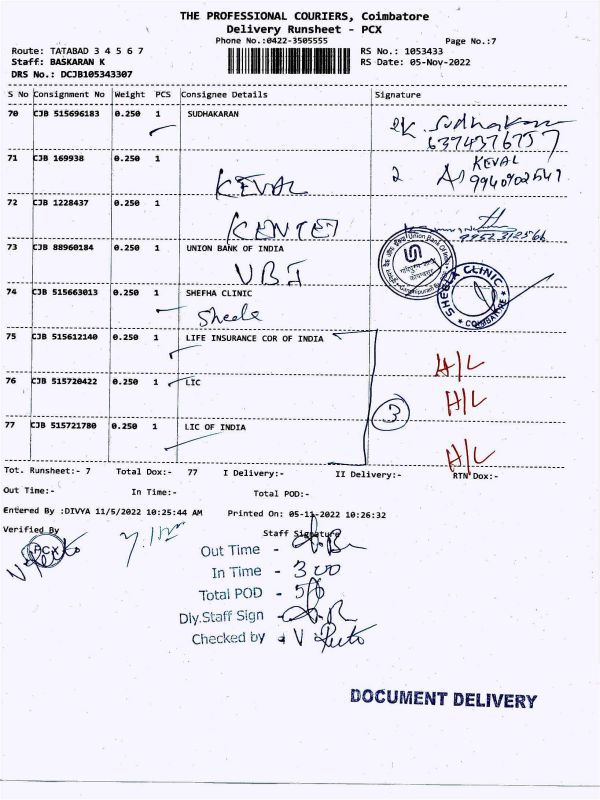 THE PROFESSIONAL COURIERS, Coimbatore
Delivery Runsheet - PCX
Phone No.:0422-3505555
Page No.:7
Route: TATABAD 3 4 5 6 7
RS No.: 1053433
Staff: BASKARAN K
RS Date: 05-Nov-2022
DRS No.: DCJB105343307
S No Consignment No Weight PCS Consignee Details Signature
70 CJB 515696183 0.250 1 SUDHAKARAN
Sudhakaran
6374376757
71 CJB 169938 0.250 1
KEVAL
KEVAL
9940902547
72 CJB 1228437 0.250 1
73 CJB 88960184 0.250 1 UNION BANK OF INDIA
UBI
Union Bank Of India
74 CJB 515663013 0.250 1 SHEFHA CLINIC
Sheela
SHEELA CLINIC
COIMBATORE
75 CJB 515612140 0.250 1 LIFE INSURANCE COR OF INDIA
H/L
76 CJB 515720422 0.250 1 LIC
H/L
3
77 CJB 515721780 0.250 1 LIC OF INDIA
H/L
Tot. Runsheet:- 7 Total Dox:- 77 I Delivery:- II Delivery:- RTN Dox:-
Out Time:- In Time:- Total POD:-
Entered By :DIVYA 11/5/2022 10:25:44 AM Printed On: 05-11-2022 10:26:32
Verified By Staff Signature
PCX
Out Time -
In Time - 300
Total POD -
Dly.Staff Sign -
Checked by -
DOCUMENT DELIVERY